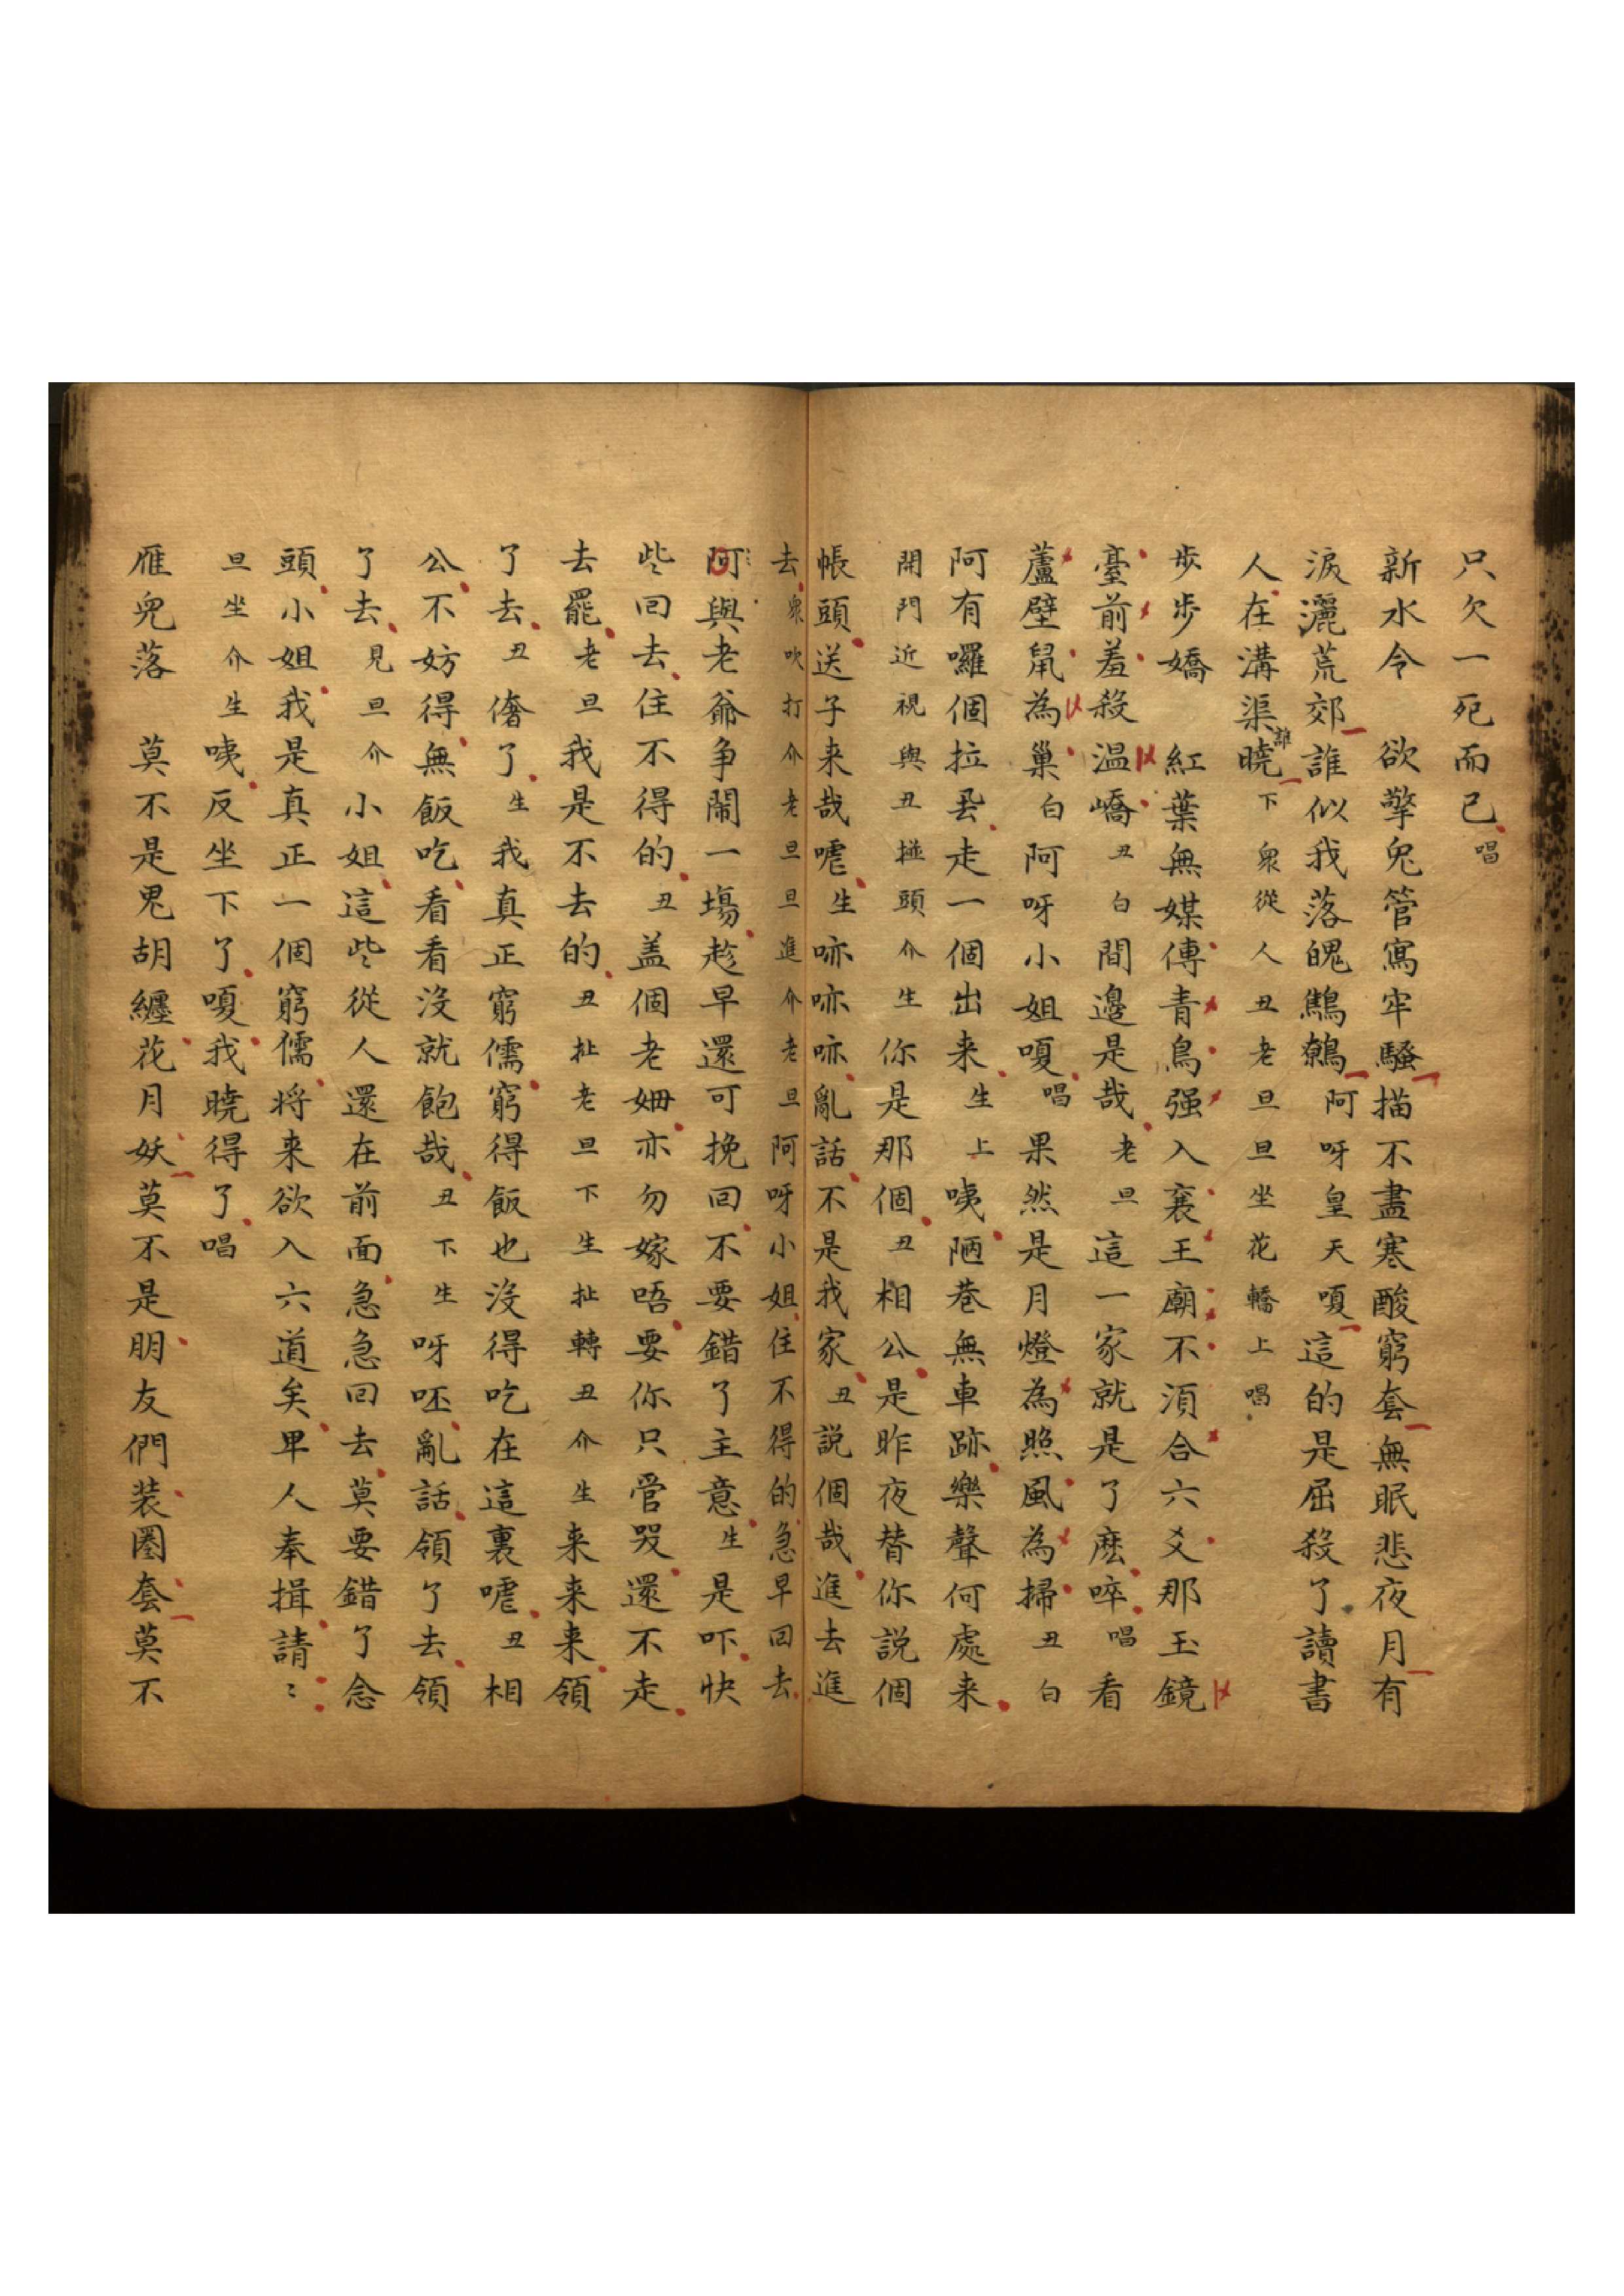 只欠一死而已唱
新水令 欲擎兔管寫牢騷描不盡寒酸窮套無眠悲夜月有
淚灑荒郊誰似我落魄鷦鷯阿呀皇天嗄這的是屈殺了讀書
人在溝渠誰曉下衆從人丑老旦旦坐花轎上唱
步步嬌 紅葉無媒傳青鳥强入襄王廟不須合六爻那玉鏡
臺前羞殺温嶠丑白間邊是哉老旦這一家就是了麽啐唱看
蘆壁鼠為巢白阿呀小姐嗄唱果然是月燈為照風為掃丑白
阿有囉個拉厾走一個出来生上咦陋巷無車跡樂聲何處来
開門近視與丑撞頭介生你是那個丑相公是昨夜替你説個
帳頭送子来哉嘑生㖷㖷㖷亂話不是我家丑説個哉進去進
去衆吹打介老旦旦進介老旦阿呀小姐住不得的急早回去
阿與老爺争鬧一塲趁早還可挽回不要錯了主意生是吓快
些回去住不得的丑盖個老姆亦勿嫁唔要你只管哭還不走
去罷老旦我是不去的丑扯老旦下生扯轉丑介生来来来領
了去丑㑰了生我真正窮儒窮得飯也沒得吃在這裏嘑丑相
公不妨得無飯吃看看沒就飽哉丑下生呀呸亂話領了去領
了去見旦介小姐這些從人還在前面急急回去莫要錯了念
頭小姐我是真正一個窮儒將来欲入六道矣卑人奉揖請〻
旦坐介生咦反坐下了嗄我曉得了唱
雁兒落 莫不是鬼胡纏花月妖莫不是朋友們装圈套莫不